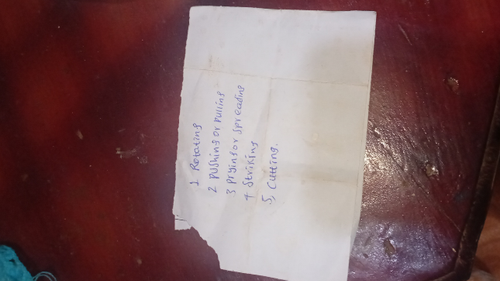 1 Rotating
2 Pushing or Pulling
3 Prying or Spreading
4 Striking
5, Cutting.